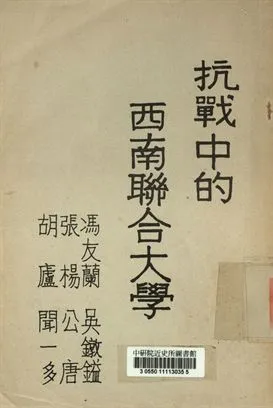 抗戰中的
西南聯合大學
馮友蘭 吳鐓鎰
張楊公唐
胡廬聞一多
中研院近史所圖書館
3 0550 11113035 5